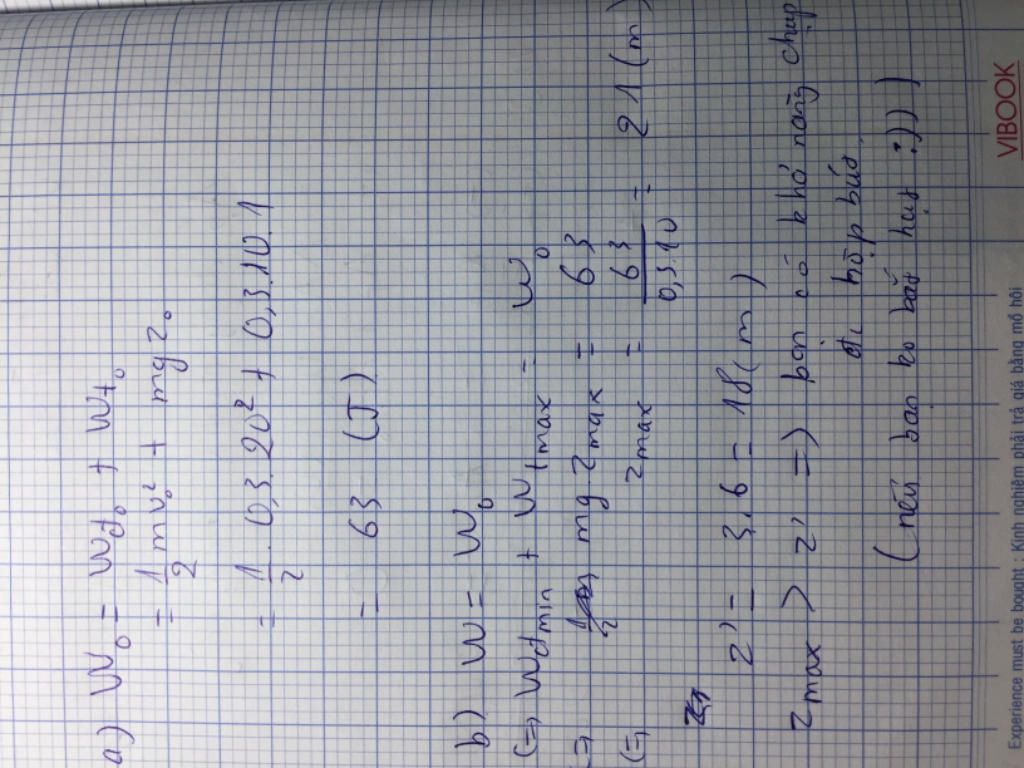 a) W₀ = Wđ₀ + Wt₀
= 1/2 mv₀² + mgz₀
= 1/2 . 0,3.20² + 0,3.10.1
= 63 (J)
b) W = W₀
(=) Wđmin + Wtmax = W₀
=) mg zmax = 63
(=) zmax = 63/0,3.10 = 21 (m)
z' = 3.6 = 18 (m)
zmax > z' =) bạn có khả năng chụp
đc hộp bút
(nếu bạn ko bắt hụt :)))
VIBOOK
Experience must be bought : Kinh nghiệm phải trả giá bằng mồ hôi